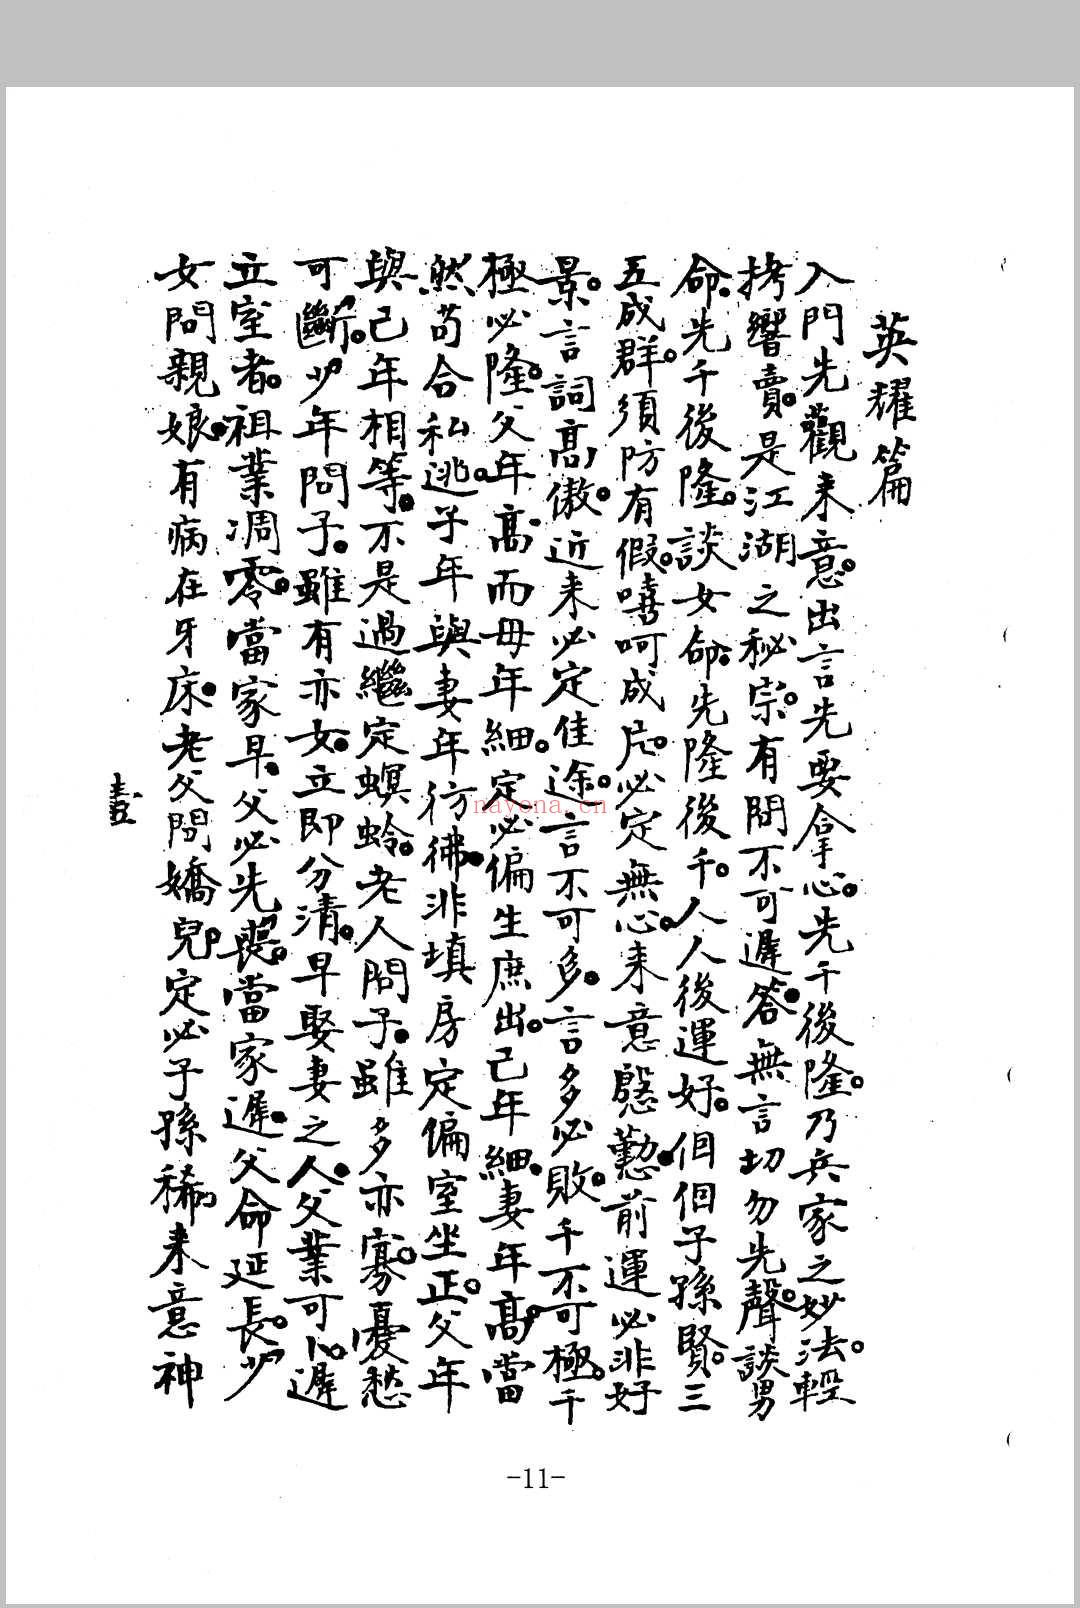 英耀篇
入門先觀来意。出言先要拿心。先千後隆。乃兵家之妙法。輕
拷響賣。是江湖之秘宗。有問不可遲答。無言切勿先聲。談男
命。先千後隆。談女命。先隆後千。人人後運好。個個子孫賢。三
五成群。須防有假。嘻呵成片。必定無心。来意慇懃。前運必非好
景。言詞高傲。近来必定佳途。言不可多。言多必敗。千不可極。千
極必隆。父年高而毋年細。定必偏生庶出。己年細。妻年高。當
然苟合私逃。子年與妻年彷彿。非填房定偏室坐正。父年
與己年相等。不是過繼定螟蛉。老人問子。雖多亦寡。憂愁
可斷。少年問子。雖有亦女。立即分清。早娶妻之人。父業可卜。遲
立室者。祖業凋零。當家早。父必先喪。當家遲。父命延長。少
女問親娘。有病在牙床。老父問嬌兒。定必子孫稀。来意神
壹
nayona.cn
-11-